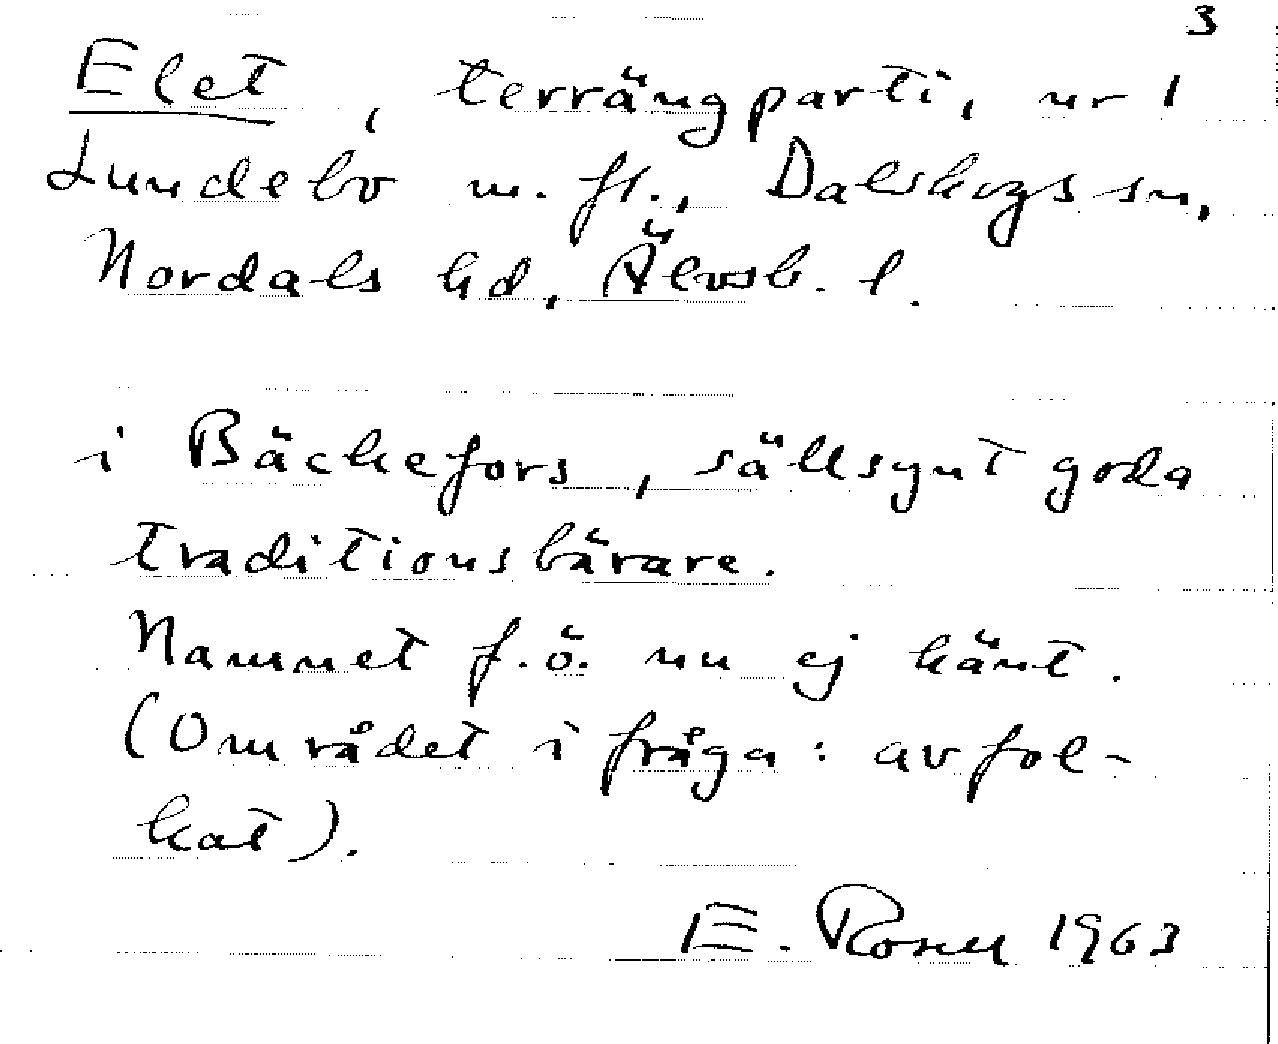 3
Elet, terrängparti, nr 1
Lundebo m.fl., Dalskogs sn,
Nordals hd, Älvsb. l.
i Bäckefors, sällsynt goda
traditionsbärare.
Namnet f.ö. nu ej känt.
(Området i fråga: avfol-
kat).
E. Rosell 1963